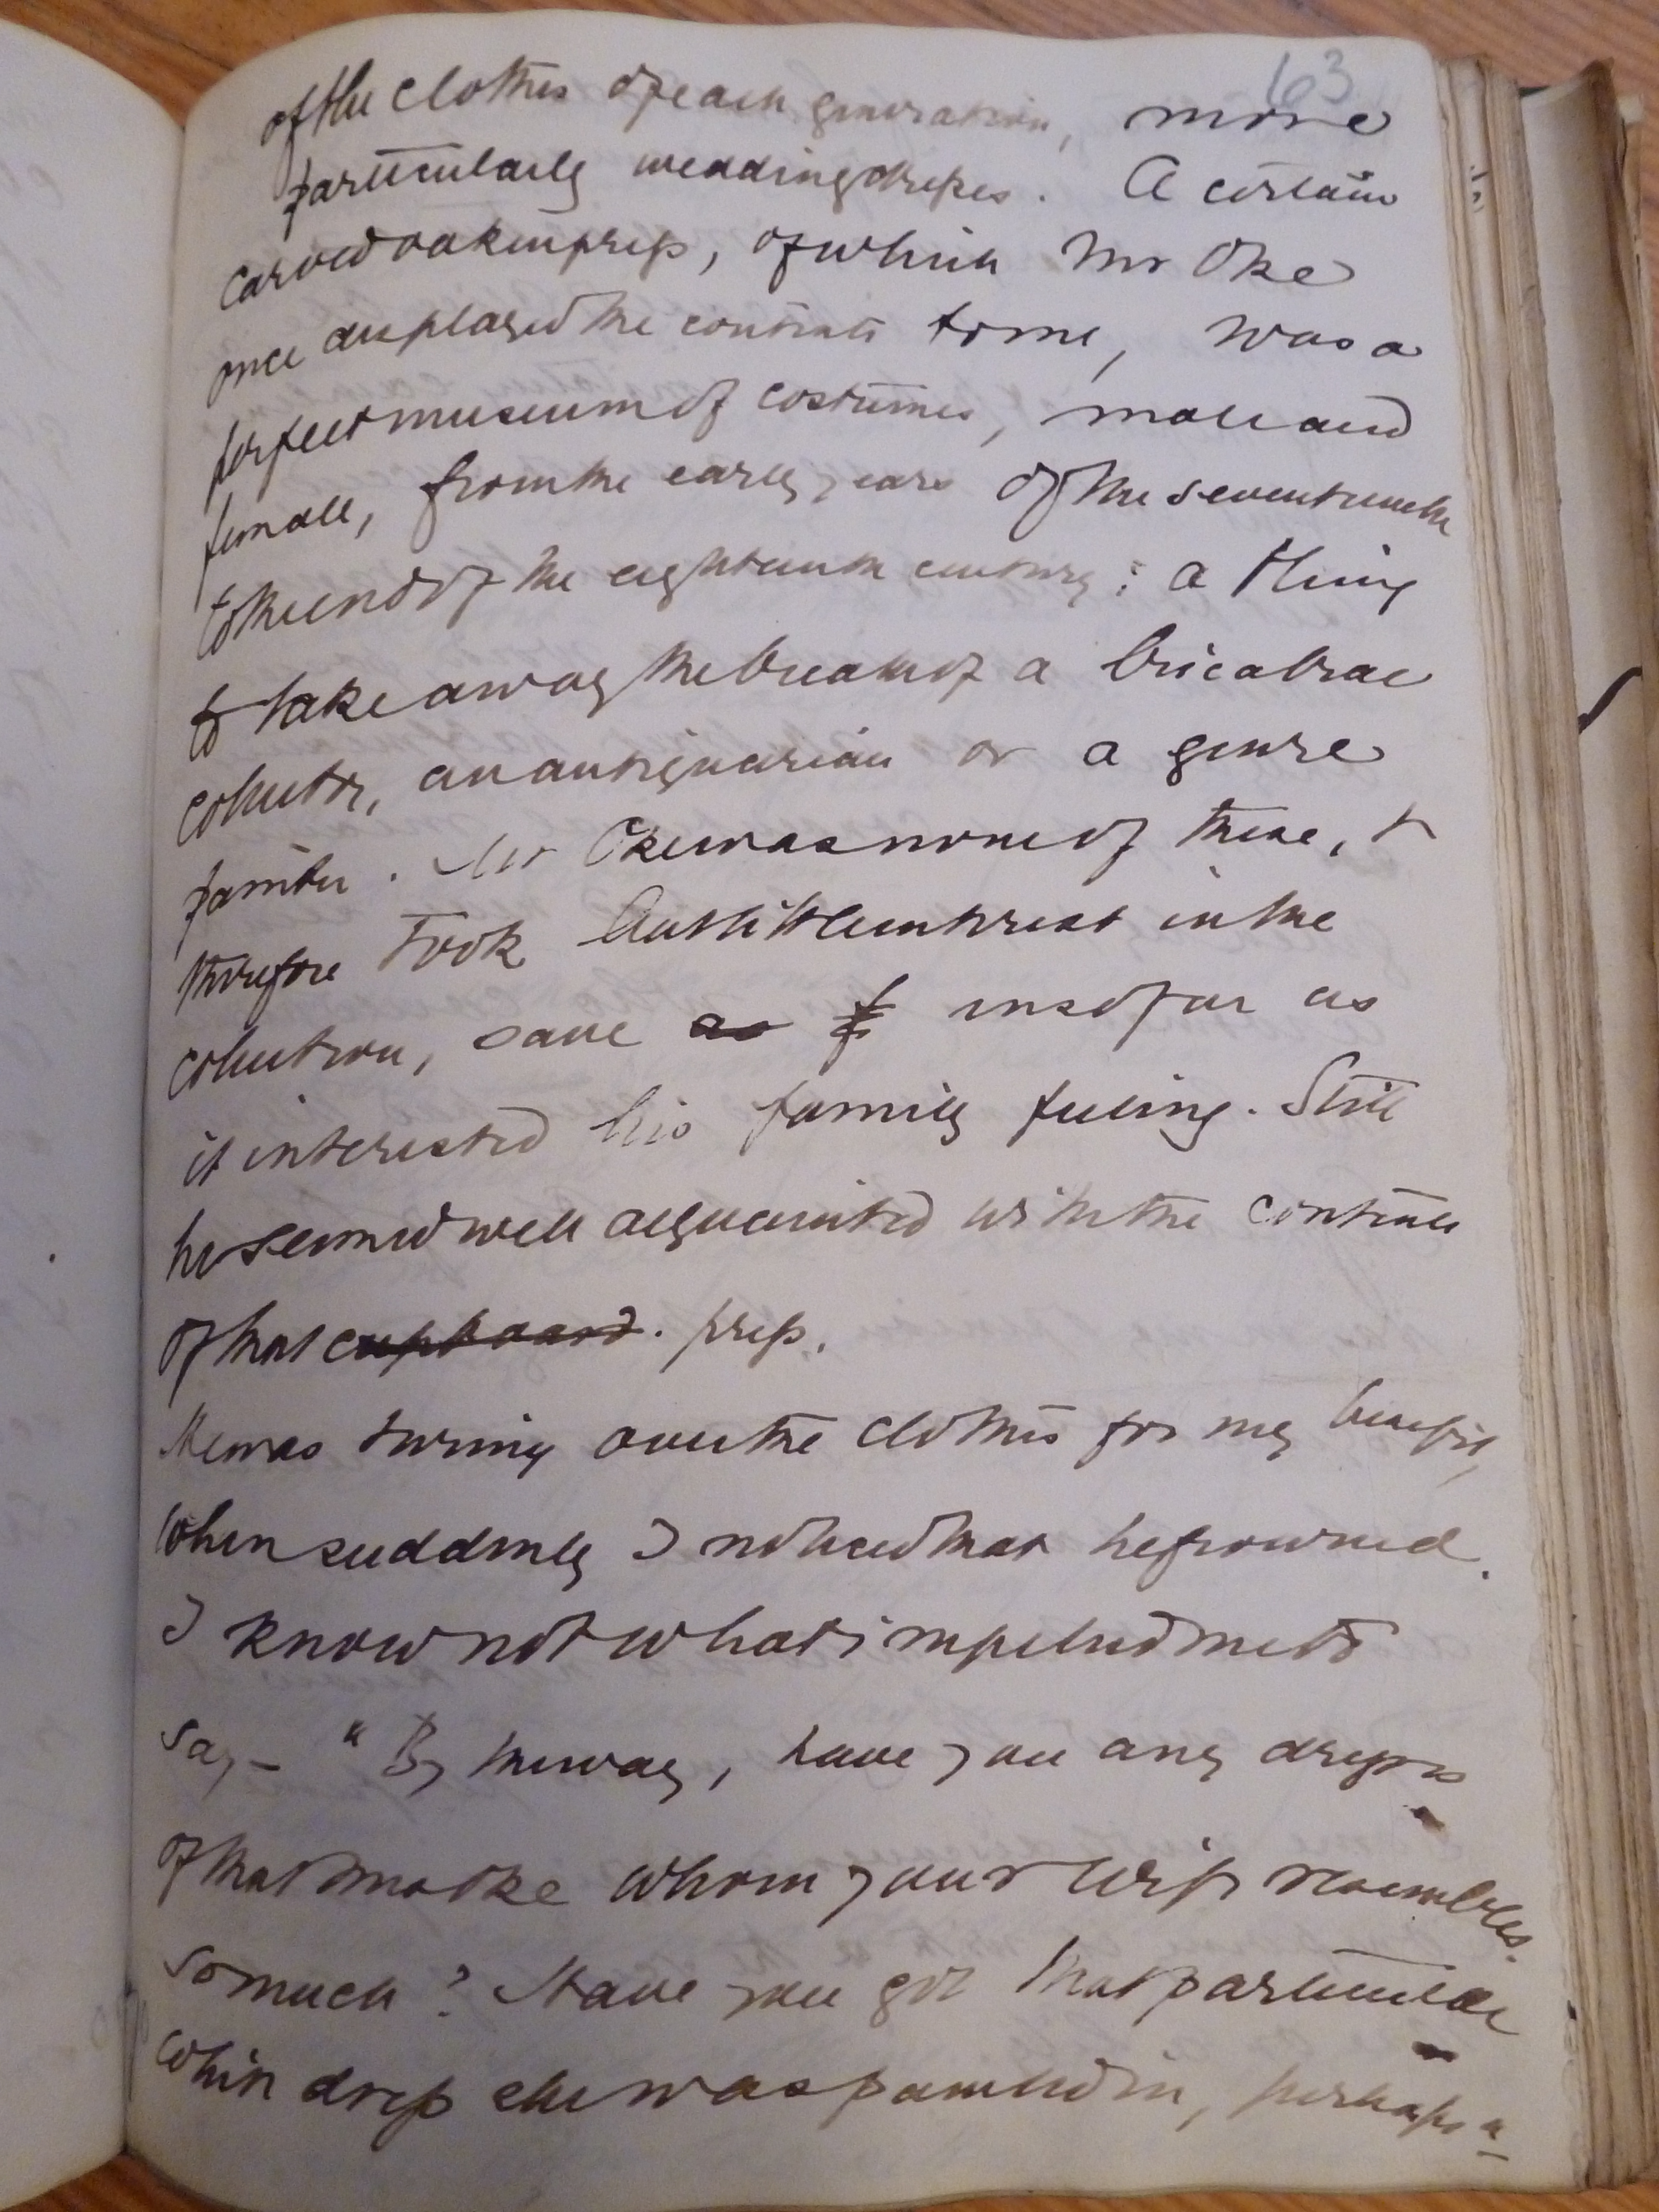 63
of the clothes of each generation, more
particularly wedding dresses. A certain
carved oaken press, of which Mr Oke
once displayed the contents to me, was a
perfect museum of costumes, male and
female, from the early years of the seventeenth
to the end of the eighteenth century: a thing
to take away the breath of a bricabrac
collector, an antiquarian or a genre
painter. Mr Oke was none of these, &
therefore took but little interest in the
collection, save as insofar as
it interested his family feeling. Still
he seemed well acquainted with the contents
of that cupboard. press.
He was turning over the clothes for my benefit,
when suddenly I noticed that he frowned.
I know not what impelled me to
say – "By the way, have you any dresses
of that Mrs Oke whom your wife resembles
so much? Have you got that particular
white dress she was painted in, perhaps"